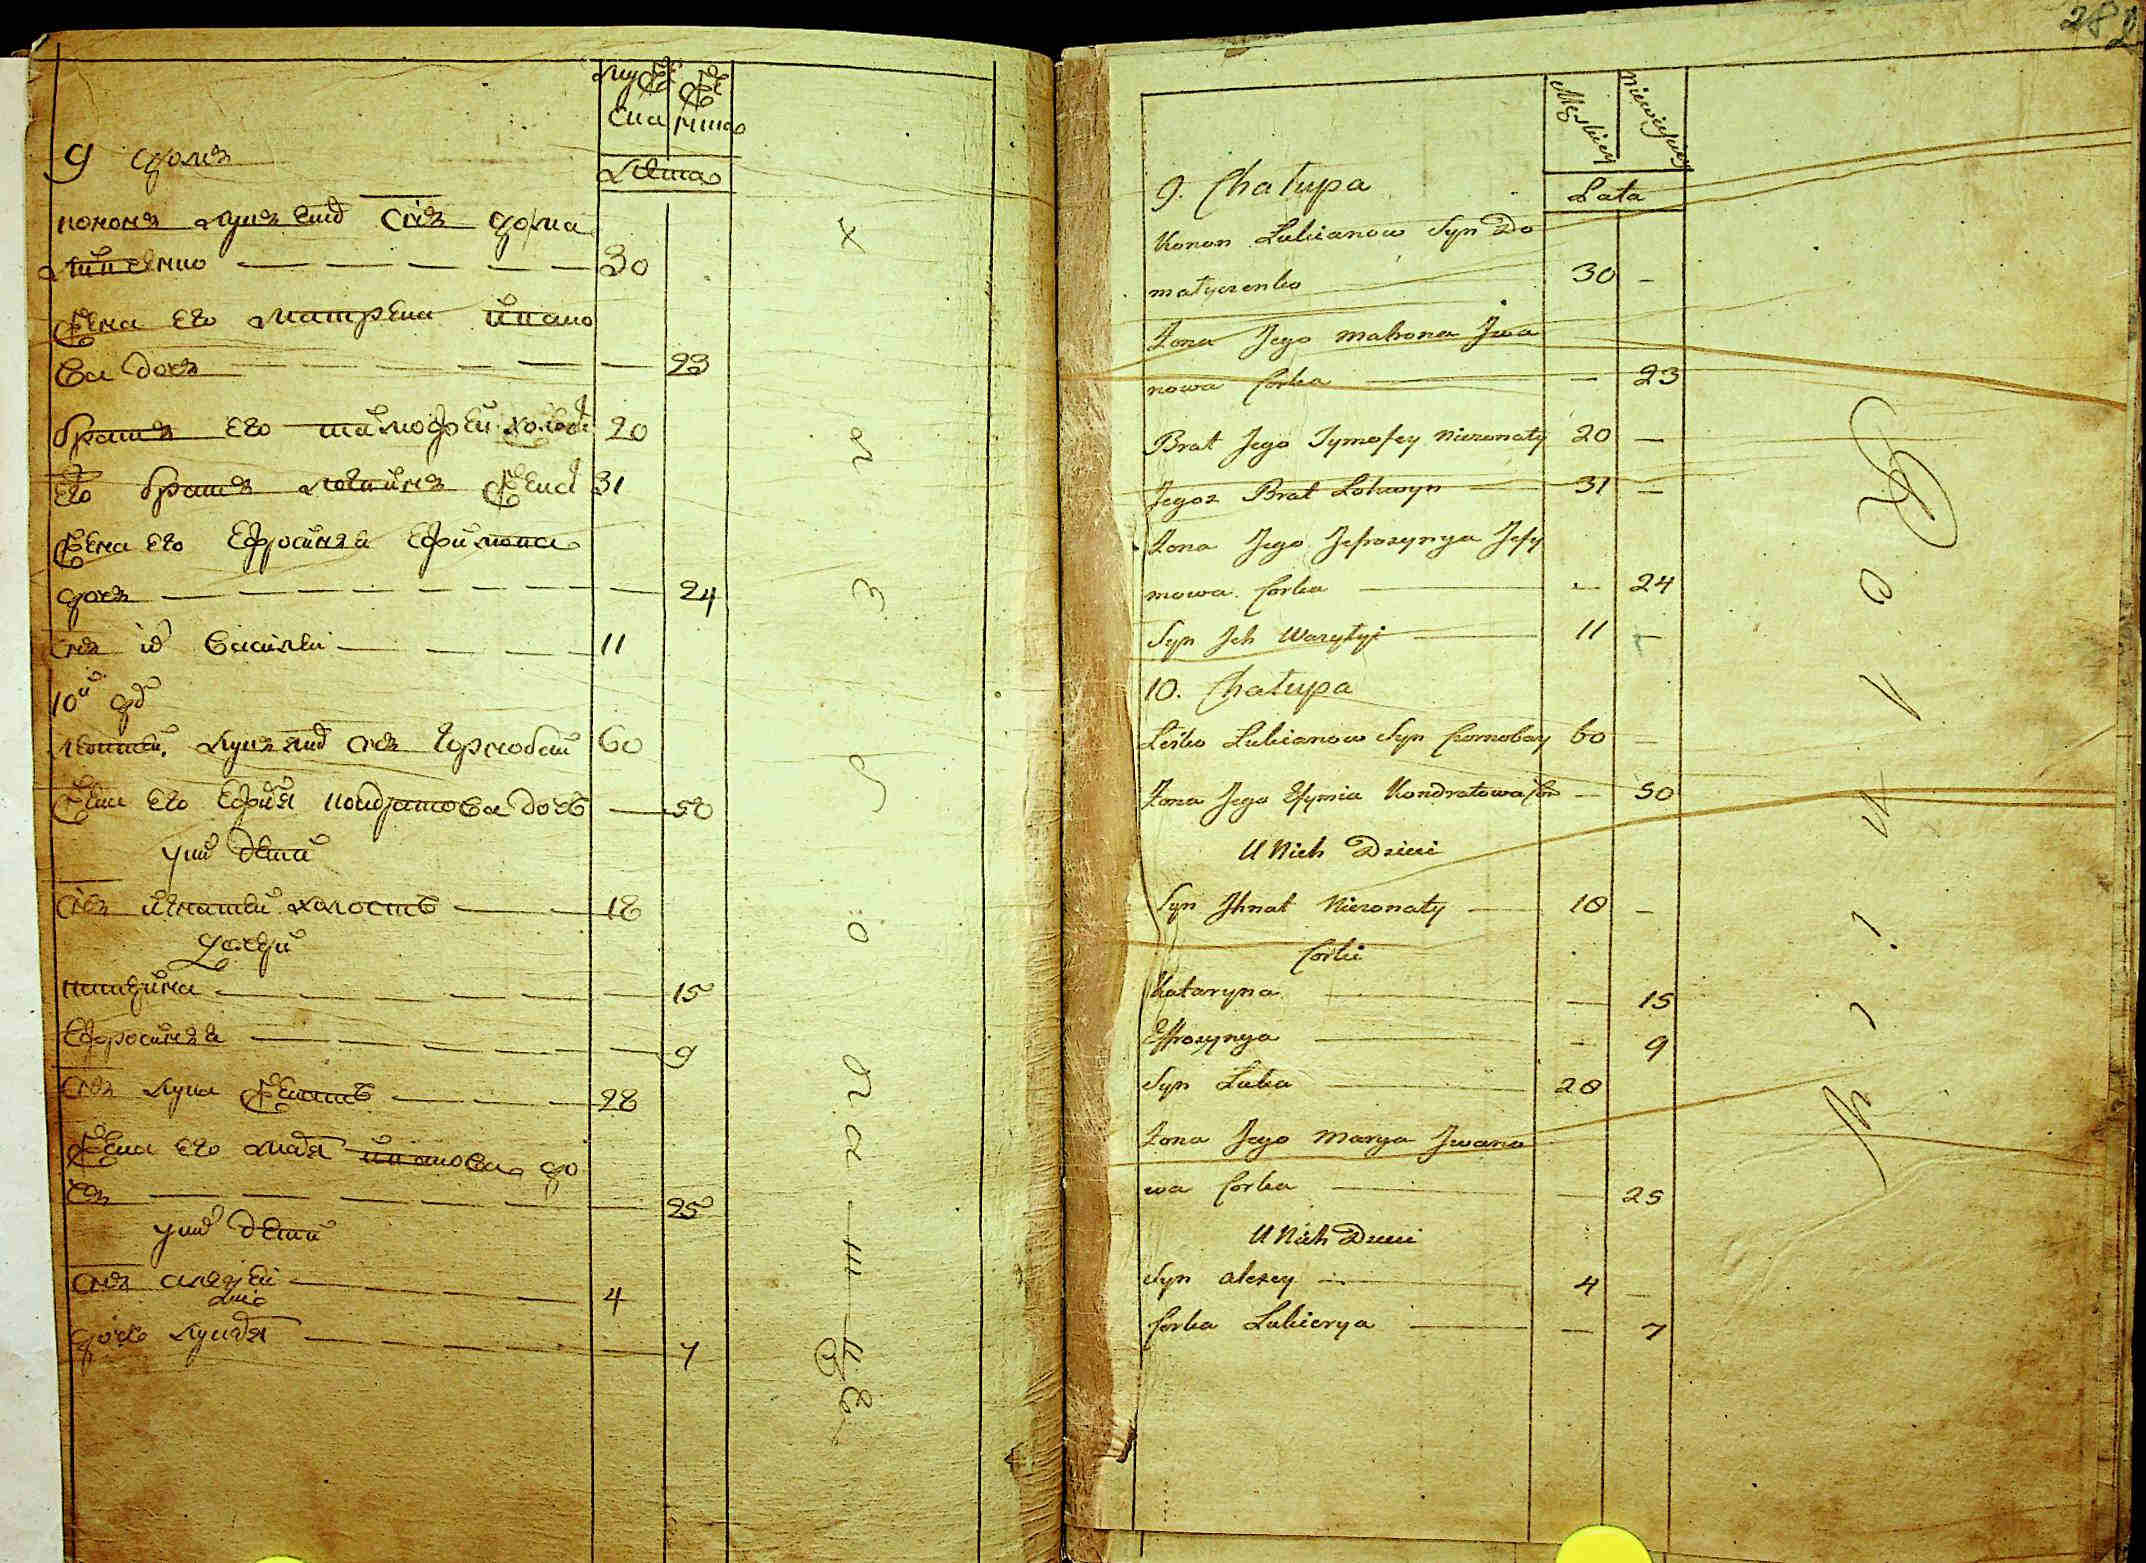 9 домъ
кононъ Лукъяновъ снъ дома
30
Жена его Матрена ивано
ва дочъ 23
братъ его тимофей холостъ 20
его братъ логвинъ женатъ 31
Жена его Ефросинъя Ефимова
дочъ 24
снъ их василей 11
10й дом
Лукъяновъ снъ Чорнобай 60
Жена его Ефимия кондратова дочь 50
у них дети
снъ игнатей холостъ 18
Дочери
катерина 15
Ефросинъя 9
снъ лука женатъ 28
Жена его Маря иванова до
чъ 25
у них дети
снъ алезей 4
дочь 7
282
Męskiey Niewieściey
Lata
9. Chałupa
Konon Lukianow Syn Do
matyczenko 30 –
Zona Jego Matrona Jwa
nowa Corka – 23
Brat Jego Tymofey Nieżonaty 20 –
Jegoż Brat Lohwyn 31 –
Zona Jego Jefrozynya Jefy
mowa Corka – 24
Syn Jch Wasylyi 11 –
10. Chałupa
Leśko Lukianow Syn Czornobay 60 –
Zona Jego Efymia Kondratowa Cor – 50
U Nich Dzieci
Syn Jhnat Nieżonaty 18 –
Corki
Kataryna – 15
Effrozynya – 9
Syn Luka 28
Zona Jego Marya Jwano
wa Corka – 25
U Nich Dzieci
Syn Alexey 4 –
Corka Lukierya – 7